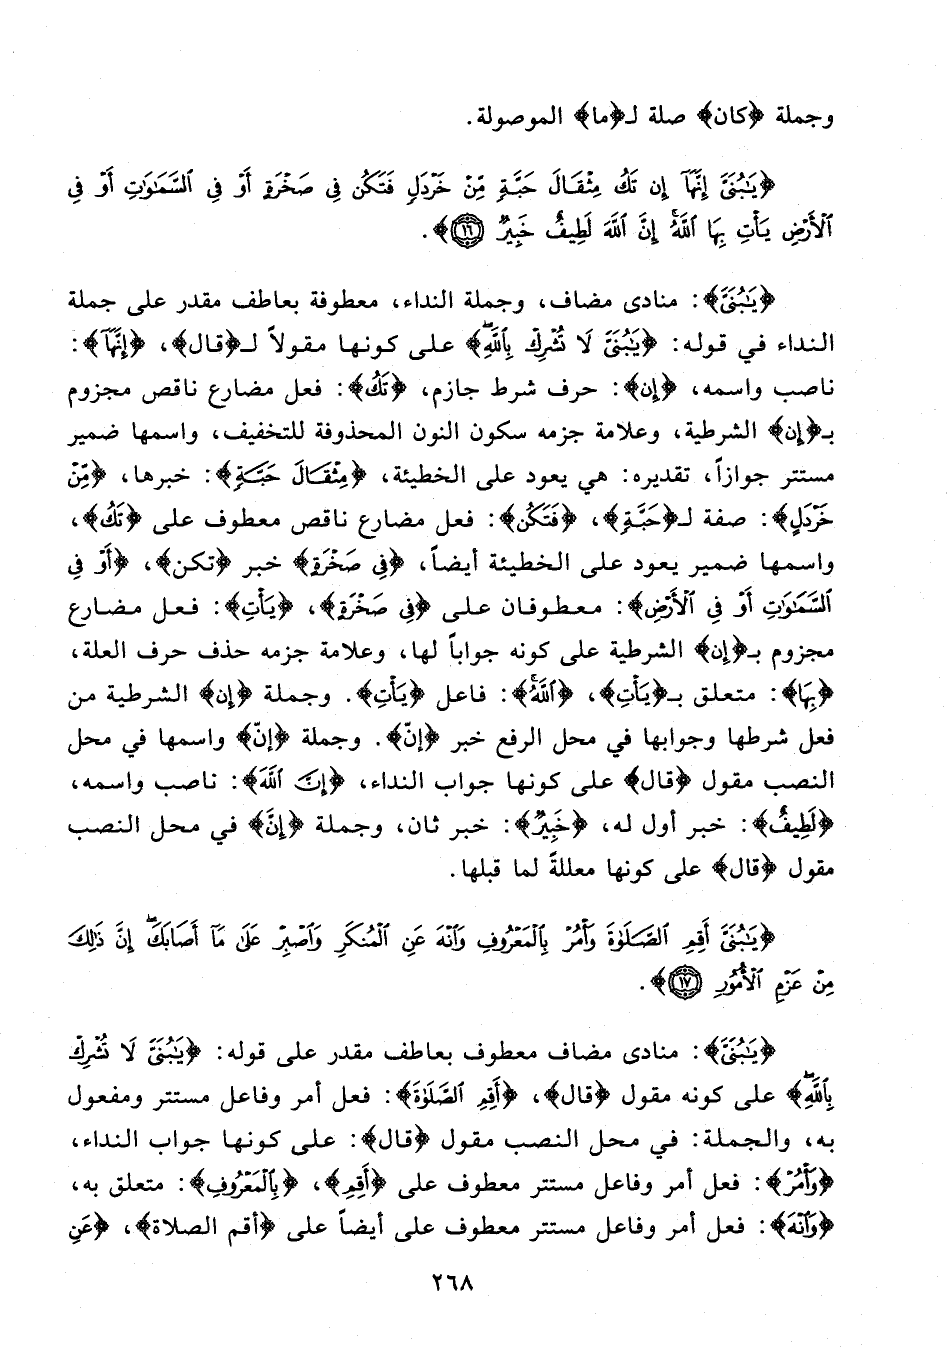 وجملة ﴿كان﴾ صلة لـ﴿ما﴾ الموصولة.
﴿يَٰبُنَىَّ إِنَّهَآ إِن تَكُ مِثْقَالَ حَبَّةٍ مِّنْ خَرْدَلٍ فَتَكُن فِى صَخْرَةٍ أَوْ فِى ٱلسَّمَٰوَٰتِ أَوْ فِى
ٱلْأَرْضِ يَأْتِ بِهَا ٱللَّهُ ۚ إِنَّ ٱللَّهَ لَطِيفٌ خَبِيرٌ ١٦﴾.
﴿يَٰبُنَىَّ﴾: منادى مضاف، وجملة النداء، معطوفة بعاطف مقدر على جملة
النداء في قوله: ﴿يَٰبُنَىَّ لَا تُشْرِكْ بِٱللَّهِ ۖ﴾ على كونها مقولاً لـ﴿قال﴾، ﴿إِنَّهَآ﴾:
ناصب واسمه، ﴿إِن﴾: حرف شرط جازم، ﴿تَكُ﴾: فعل مضارع ناقص مجزوم
بـ﴿إن﴾ الشرطية، وعلامة جزمه سكون النون المحذوفة للتخفيف، واسمها ضمير
مستتر جوازاً، تقديره: هي يعود على الخطيئة، ﴿مِثْقَالَ حَبَّةٍ﴾: خبرها، ﴿مِّنْ
خَرْدَلٍ﴾: صفة لـ﴿حَبَّةٍ﴾، ﴿فَتَكُن﴾: فعل مضارع ناقص معطوف على ﴿تَكُ﴾،
واسمها ضمير يعود على الخطيئة أيضاً، ﴿فِى صَخْرَةٍ﴾ خبر ﴿تكن﴾، ﴿أَوْ فِى
ٱلسَّمَٰوَٰتِ أَوْ فِى ٱلْأَرْضِ﴾: معطوفان على ﴿فِى صَخْرَةٍ﴾، ﴿يَأْتِ﴾: فعل مضارع
مجزوم بـ﴿إن﴾ الشرطية على كونه جواباً لها، وعلامة جزمه حذف حرف العلة،
﴿بِهَا﴾: متعلق بـ﴿يَأْتِ﴾، ﴿ٱللَّهُ ۚ﴾: فاعل ﴿يَأْتِ﴾. وجملة ﴿إن﴾ الشرطية من
فعل شرطها وجوابها في محل الرفع خبر ﴿إنّ﴾. وجملة ﴿إنّ﴾ واسمها في محل
النصب مقول ﴿قال﴾ على كونها جواب النداء، ﴿إِنَّ ٱللَّهَ﴾: ناصب واسمه،
﴿لَطِيفٌ﴾: خبر أول له، ﴿خَبِيرٌ﴾: خبر ثان، وجملة ﴿إِنَّ﴾ في محل النصب
مقول ﴿قال﴾ على كونها معللةً لما قبلها.
﴿يَٰبُنَىَّ أَقِمِ ٱلصَّلَوٰةَ وَأْمُرْ بِٱلْمَعْرُوفِ وَٱنْهَ عَنِ ٱلْمُنكَرِ وَٱصْبِرْ عَلَىٰ مَآ أَصَابَكَ ۖ إِنَّ ذَٰلِكَ
مِنْ عَزْمِ ٱلْأُمُورِ ١٧﴾.
﴿يَٰبُنَىَّ﴾: منادى مضاف معطوف بعاطف مقدر على قوله: ﴿يَٰبُنَىَّ لَا تُشْرِكْ
بِٱللَّهِ ۖ﴾ على كونه مقول ﴿قال﴾، ﴿أَقِمِ ٱلصَّلَوٰةَ﴾: فعل أمر وفاعل مستتر ومفعول
به، والجملة: في محل النصب مقول ﴿قال﴾: على كونها جواب النداء،
﴿وَأْمُرْ﴾: فعل أمر وفاعل مستتر معطوف على ﴿أَقِمِ﴾، ﴿بِٱلْمَعْرُوفِ﴾: متعلق به،
﴿وَٱنْهَ﴾: فعل أمر وفاعل مستتر معطوف على أيضاً على ﴿أقم الصلاة﴾، ﴿عَنِ
٢٦٨